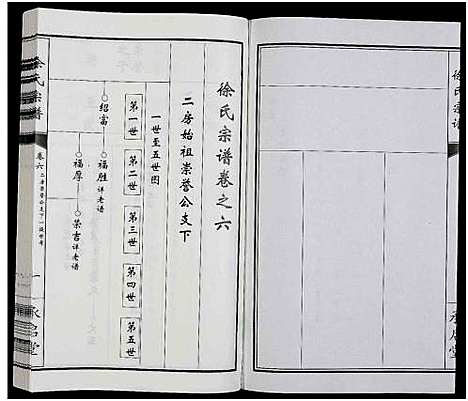 徐氏宗谱
徐氏宗谱卷之六
二房始祖崇誉公支下
一世至五世图
第一世
第二世
第三世
第四世
第五世
绍富
福胜详老谱
福厚
荣吉详老谱
徐氏宗谱
卷六
一
承启堂